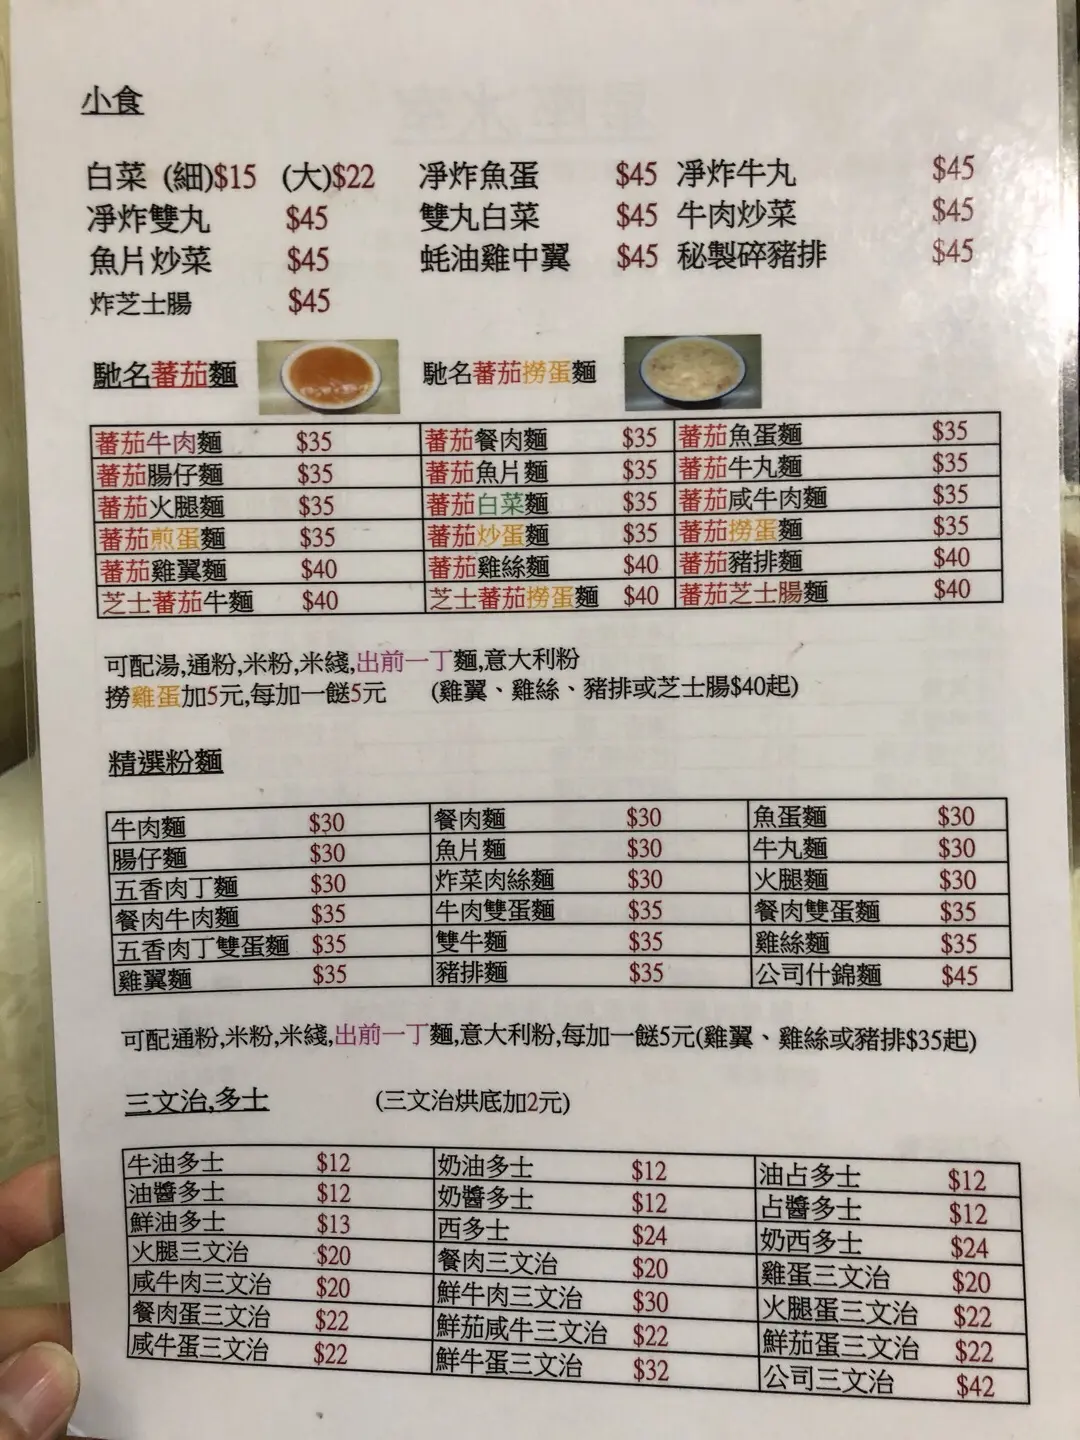 小食
白菜 (細)$15 (大)$22 凈炸魚蛋 $45 凈炸牛丸 $45
凈炸雙丸 $45 雙丸白菜 $45 牛肉炒菜 $45
魚片炒菜 $45 蚝油雞中翼 $45 秘製碎豬排 $45
炸芝士腸 $45
馳名蕃茄麵 馳名蕃茄撈蛋麵
蕃茄牛肉麵 $35 蕃茄餐肉麵 $35 蕃茄魚蛋麵 $35
蕃茄腸仔麵 $35 蕃茄魚片麵 $35 蕃茄牛丸麵 $35
蕃茄火腿麵 $35 蕃茄白菜麵 $35 蕃茄咸牛肉麵 $35
蕃茄煎蛋麵 $35 蕃茄炒蛋麵 $35 蕃茄撈蛋麵 $35
蕃茄雞翼麵 $40 蕃茄雞絲麵 $40 蕃茄豬排麵 $40
芝士蕃茄牛麵 $40 芝士蕃茄撈蛋麵 $40 蕃茄芝士腸麵 $40
可配湯,通粉,米粉,米綫,出前一丁麵,意大利粉
撈雞蛋加5元,每加一餸5元 (雞翼、雞絲、豬排或芝士腸$40起)
精選粉麵
牛肉麵 $30 餐肉麵 $30 魚蛋麵 $30
腸仔麵 $30 魚片麵 $30 牛丸麵 $30
五香肉丁麵 $30 炸菜肉絲麵 $30 火腿麵 $30
餐肉牛肉麵 $35 牛肉雙蛋麵 $35 餐肉雙蛋麵 $35
五香肉丁雙蛋麵 $35 雙牛麵 $35 雞絲麵 $35
雞翼麵 $35 豬排麵 $35 公司什錦麵 $45
可配通粉,米粉,米綫,出前一丁麵,意大利粉,每加一餸5元(雞翼、雞絲或豬排$35起)
三文治,多士 (三文治烘底加2元)
牛油多士 $12 奶油多士 $12 油占多士 $12
油醬多士 $12 奶醬多士 $12 占醬多士 $12
鮮油多士 $13 西多士 $24 奶西多士 $24
火腿三文治 $20 餐肉三文治 $20 雞蛋三文治 $20
咸牛肉三文治 $20 鮮牛肉三文治 $30 火腿蛋三文治 $22
餐肉蛋三文治 $22 鮮茄咸牛三文治 $22 鮮茄蛋三文治 $22
咸牛蛋三文治 $22 鮮牛蛋三文治 $32 公司三文治 $42